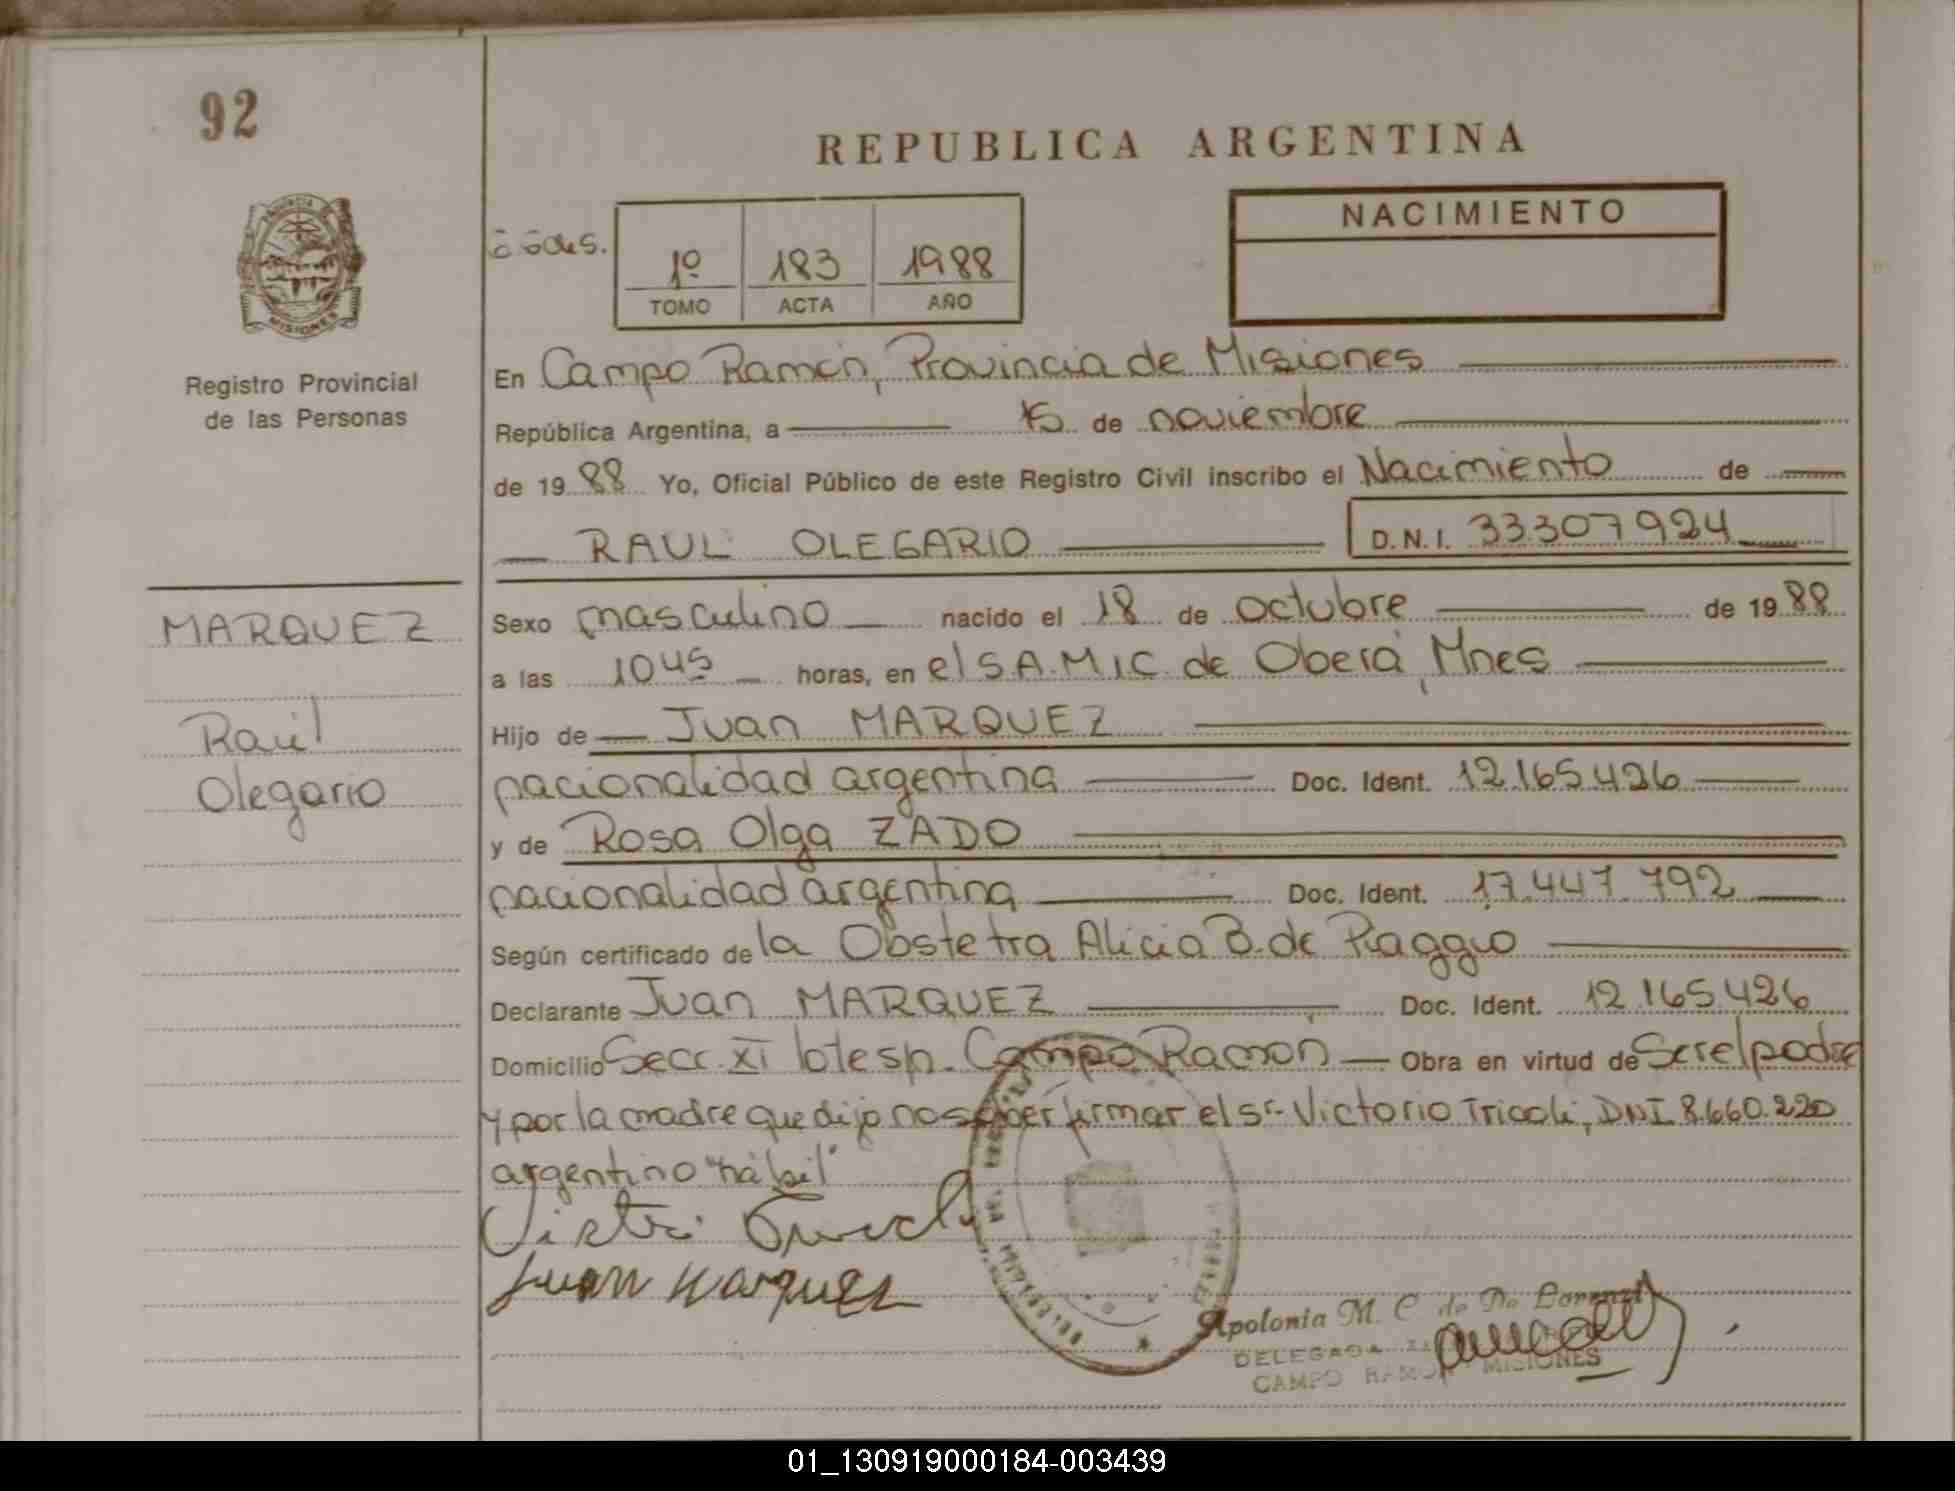 92
REPUBLICA ARGENTINA
PROVINCIA DE
MISIONES
Registro Provincial
de las Personas
1º 183 1988
TOMO ACTA AÑO
NACIMIENTO
En Campo Ramón, Provincia de Misiones
República Argentina, a 15 de noviembre
de 1988 Yo, Oficial Público de este Registro Civil inscribo el Nacimiento de
RAUL OLEGARIO D.N.I. 33307924
MARQUEZ
Raúl
Olegario
Sexo masculino nacido el 18 de octubre de 1988
a las 1045 horas, en el S.A.M.I.C. de Oberá, Mnes
Hijo de Juan MARQUEZ
nacionalidad argentina Doc. Ident. 12.165.426
y de Rosa Olga ZADO
nacionalidad argentina Doc. Ident. 17.447.792
Según certificado de la Obstetra Alicia B. de Raggio
Declarante Juan MARQUEZ Doc. Ident. 12.165.426
Domicilio Secc. XI lote sp. Campo Ramón Obra en virtud de Ser el padre
y por la madre que dijo no saber firmar el Sr. Victorio Tricoli, DNI 8.660.220
argentino "hábil"
Juan Marquez
Apolonia M. C. de Do Lorenzi
DELEGADA
CAMPO RAMON MISIONES
01_130919000184-003439